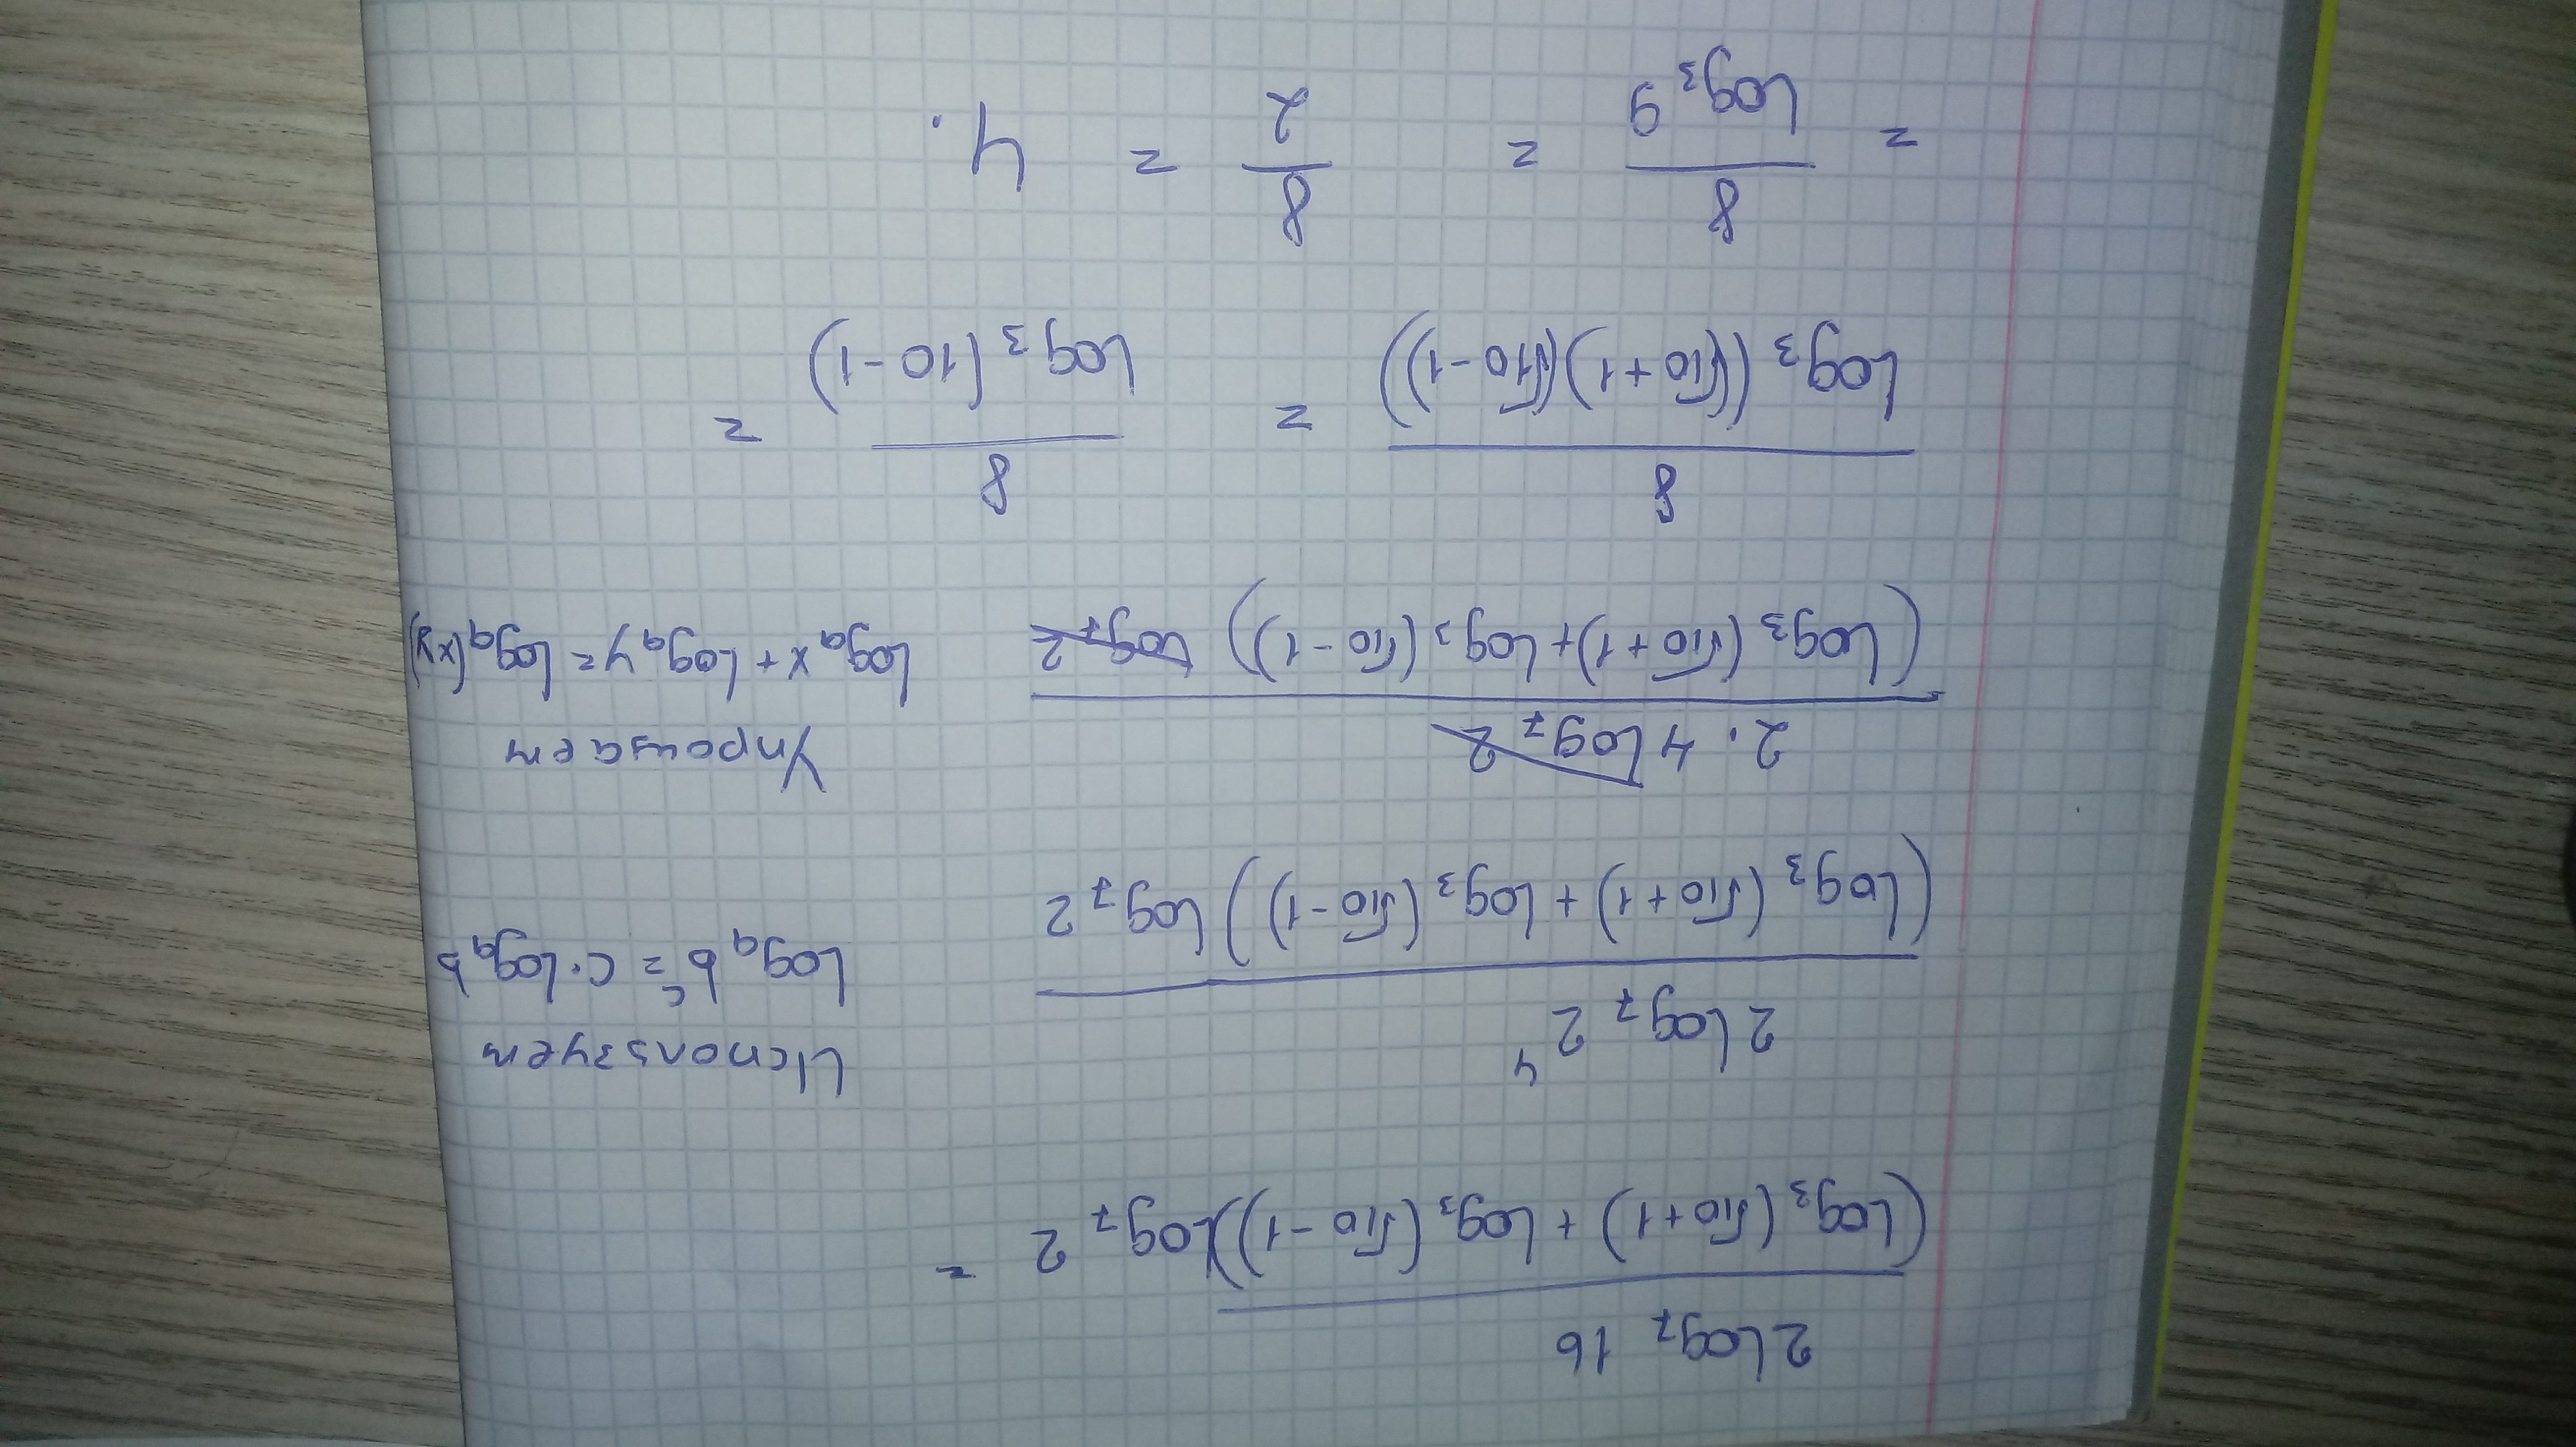 2log₇ 16
(log₃(√10+1) + log₃(√10-1))log₇ 2 =
2log₇ 2⁴
(log₃(√10+1) + log₃(√10-1))log₇ 2
Использует
logₐ bᶜ = c·logₐ b
2·4log₇ 2
(log₃(√10+1)+log₃(√10-1)) log₇ 2
Упрощаем
logₐ x + logₐ y = logₐ(xy)
8
log₃((√10+1)(√10-1))
=
8
log₃(10-1)
=
=
8
log₃ 9
=
8
2
=
4.